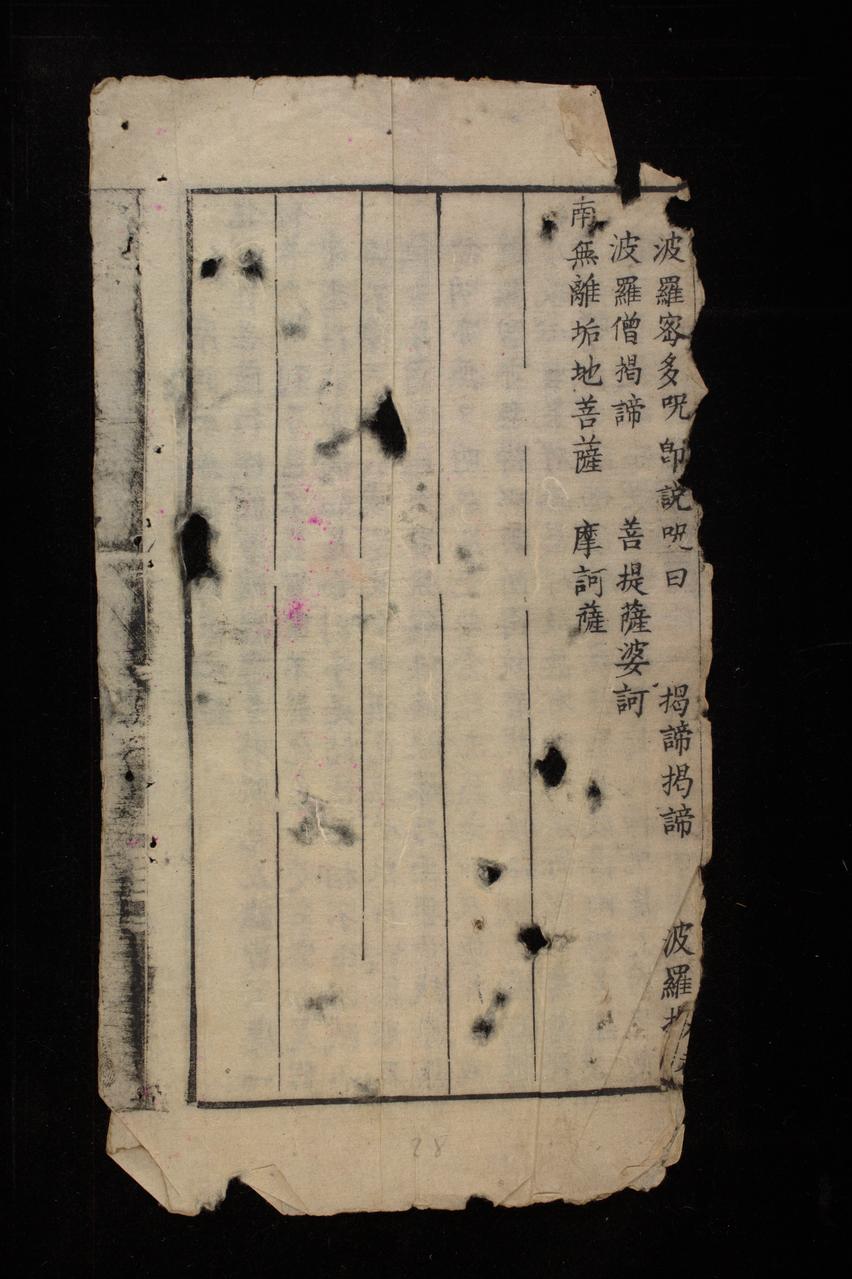 波羅密多呪 卽說呪曰 揭諦揭諦 波羅揭
波羅僧揭諦 菩提薩婆訶
南無離垢地菩薩 摩訶薩
28